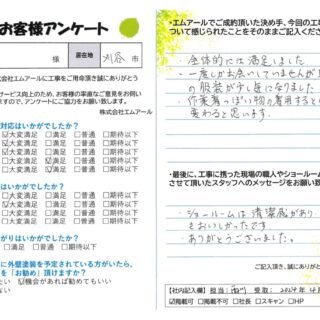 お客様アンケート
様 居住地 刈谷 市
株式会社エムアールに工事をご用命頂き誠にありがとう
サービス向上のため、お客様の率直なご意見をお伺い
ますので、アンケートにご協力をお願い致します。
株式会社エムアール
対応はいかがでしたか？
☑大変満足 □満足 □普通 □期待以下
大変満足 □満足 □普通 □期待以下
大変満足 □満足 □普通 □期待以下
□大変満足 ☑満足 □普通 □期待以下
大変満足 □満足 □普通 □期待以下
はいかがでしたか？
大変満足 □満足 □普通 □期待以下
大変満足 □満足 □普通 □期待以下
□大変満足 ☑満足 □普通 □期待以下
がりはいかがでしたか？
足 □満足 □普通 □期待以下
に外壁塗装を予定されている方がいたら、
を「お勧め」頂けますか？
たい ☑機会があれば勧めてもいい
ない
・エムアールでご成約頂いた決め手、今回の工
ついて感じられたことをそのままご記入ください
・全体的に満足しました
・一度しかお会いしていませんが
の服装が少し気になりました
・作業着っぽい物の着用すると
変わると思います。
・最後に、工事に携った現場の職人やショールーム
させて頂いたスタッフへのメッセージをお願い致
・ショールームは清潔感があり
もおいしかったです
・ありがとうございました。
ご記入頂き、誠にありが
【社内記入欄】 担当： 受取： 2024年
☑掲載可 □掲載不可 □社長 □スキャン □HP